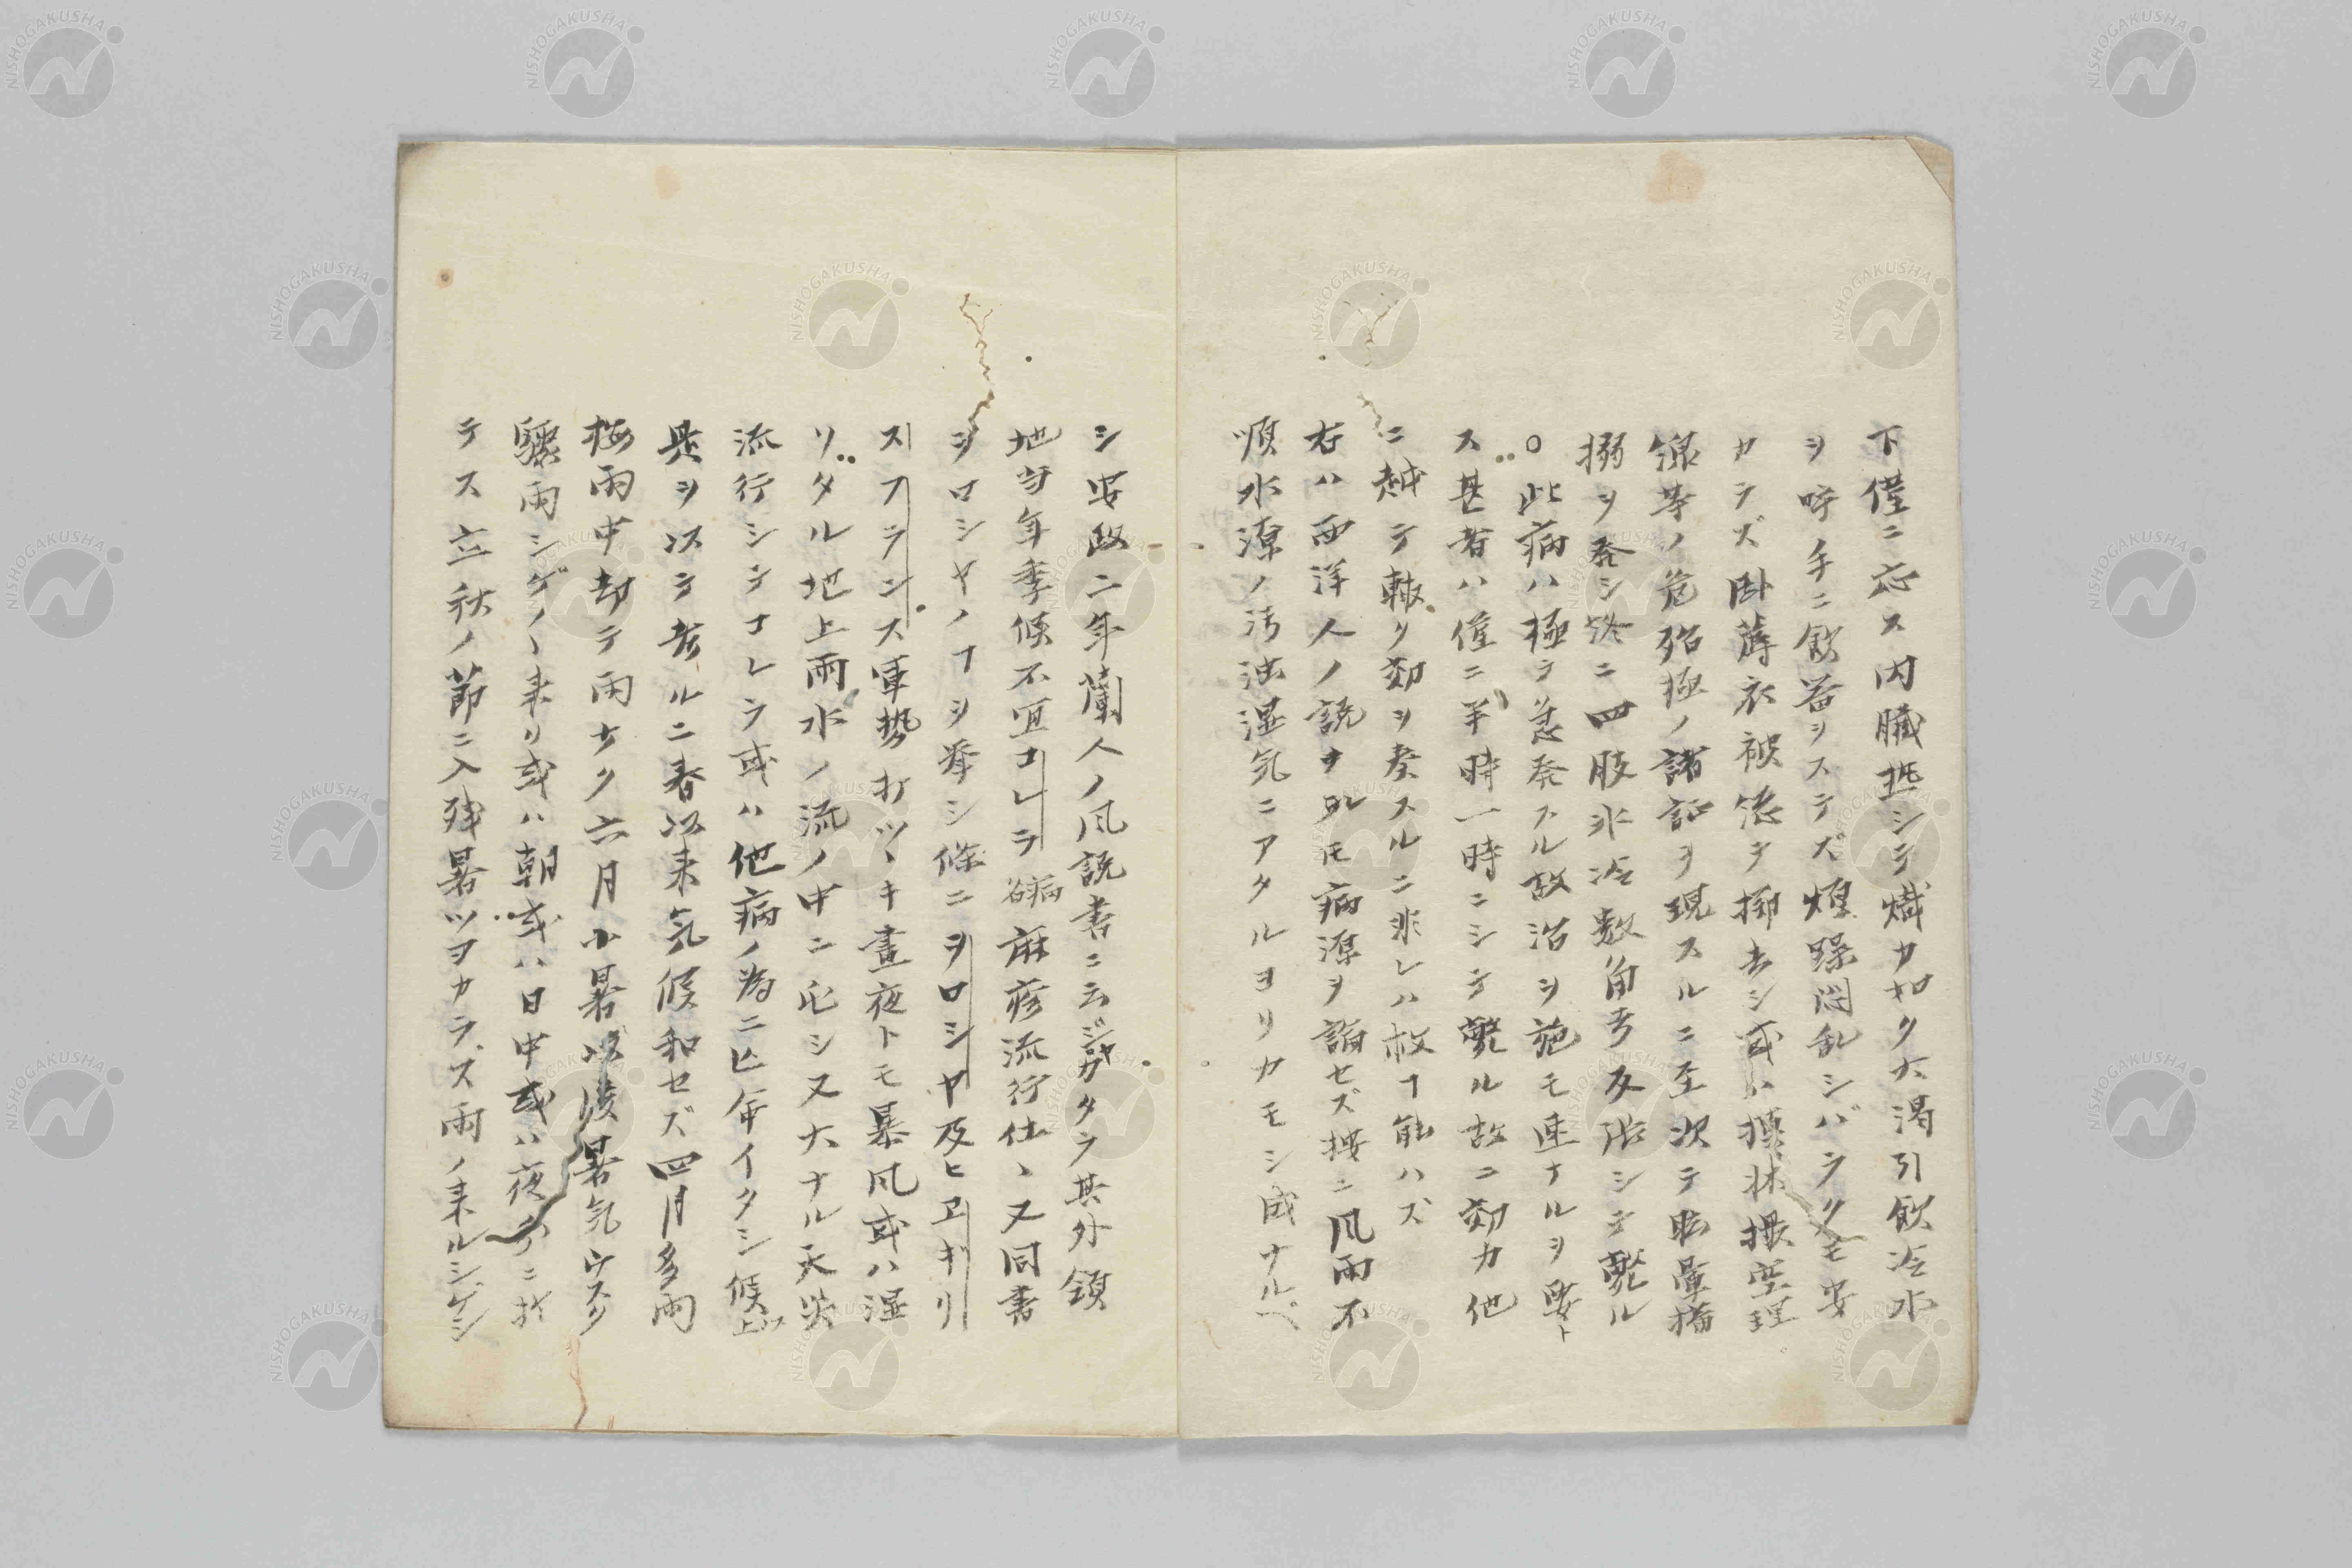 下僅ニ応ス内臓抵シテ熾カ如ク大渇引飲冷水
ヲ呼ノ手ニ飲器ヲステズ煩躁悶乱シバラクモ安
カラズ臥薄衣被悉テ擲去シ或ハ摸牀撮空理
線等ノ危殆極ノ諸証ヲ現スルニ至次テ眩暈搐
搦ヲ発シ終ニ四肢氷冷数角弓反張シテ斃ル
○此病ハ極テ急発スル故治ヲ施モ速ナルヲ要ト
ス甚者ハ僅ニ半時一時ニシテ斃ル故ニ効力他
ニ越テ敏ク効ヲ奏スルニ非レハ救フ能ハズ
右ハ西洋人ノ説ナルモ病源ヲ論セズ按ニ風雨不
順水潦ノ汚濁湿気ニアタルヨリカモシ成ナルベ
シ安政二年蘭人ノ風説書ニ云ジヤガタラ其外領
地当年季候不宜コレラ病麻疹流行仕ヽ又同書
ヲロシヤノフヲ挙シ條ニヲロシヤ及ヒヱギリ
スフランス軍勢打ツヽキ昼夜トモ暴風或ハ湿
リタル地上雨水ノ流ノ中ニ臥シ又大ナル天災
流行シテコレラ或ハ他病ノ為ニ亡命イタシ候以上
是ヲ以テ考ルニ春以来気候和セズ四月多雨
梅雨中却テ雨ナク六月小暑以後暑気ウスク
驟雨シゲ〱来リ或ハ朝或ハ日中或ハ夜分ニ於
テス立秋ノ節ニ入残暑ツヨカラズ雨ノ来ルシゲシ
NISHOGAKUSHA